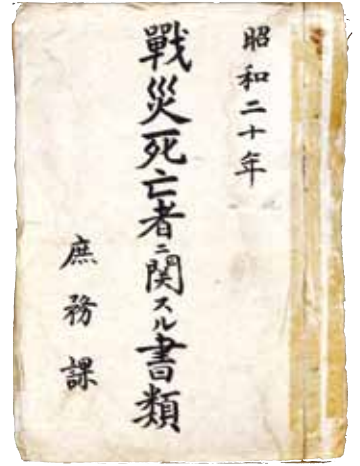 昭和二十年
戰災死亡者ニ関スル書類
庶務課